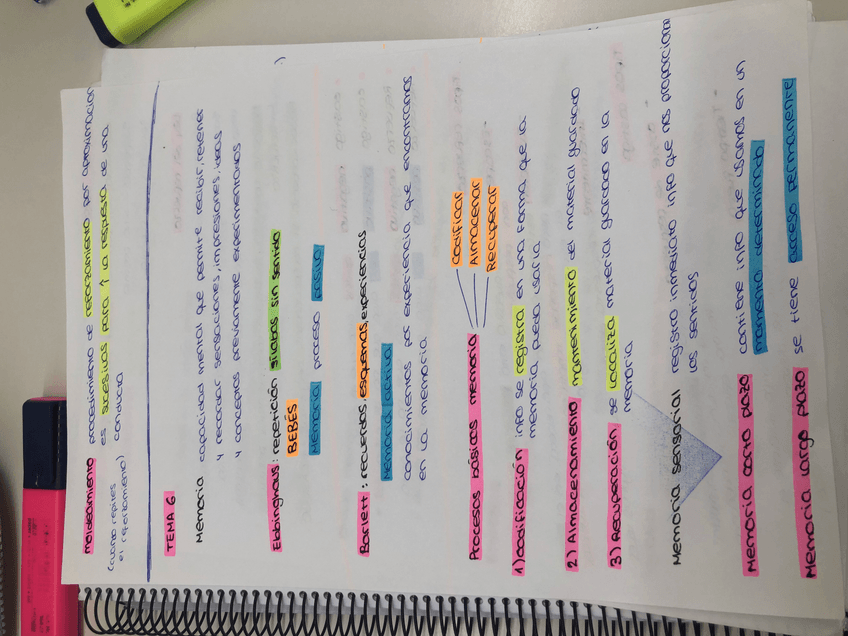 moldeamiento procedimiento de reforzamiento por aproximacion
(cuando repites es sucesivas para ↑ la respuesta de una
el reforzamiento) conducta
TEMA 6
Memoria capacidad mental que permite recibir, retener
y recordar sensaciones, impresiones, ideas
y conceptos previamente experimentados
Ebbinghaus: repetición sílabas sin sentido
BEBÉS
Memoria proceso pasivo
Barlett: recuerdos, esquemas, experiencias
Memoria (activa)
conocimientos por experiencia que encontramos
en la memoria
Procesos básicos memoria
Codificar
Almacenar
Recuperar
1) Codificación info se registra en una forma que la
memoria pueda usarla
2) Almacenamiento mantenimiento del material guardado
3) Recuperación se localiza material guardado en la
memoria
Memoria sensorial registro inmediato info que nos proporcionan
los sentidos
Memoria corto plazo contiene info que usamos en un
momento determinado
Memoria largo plazo se tiene acceso permanente